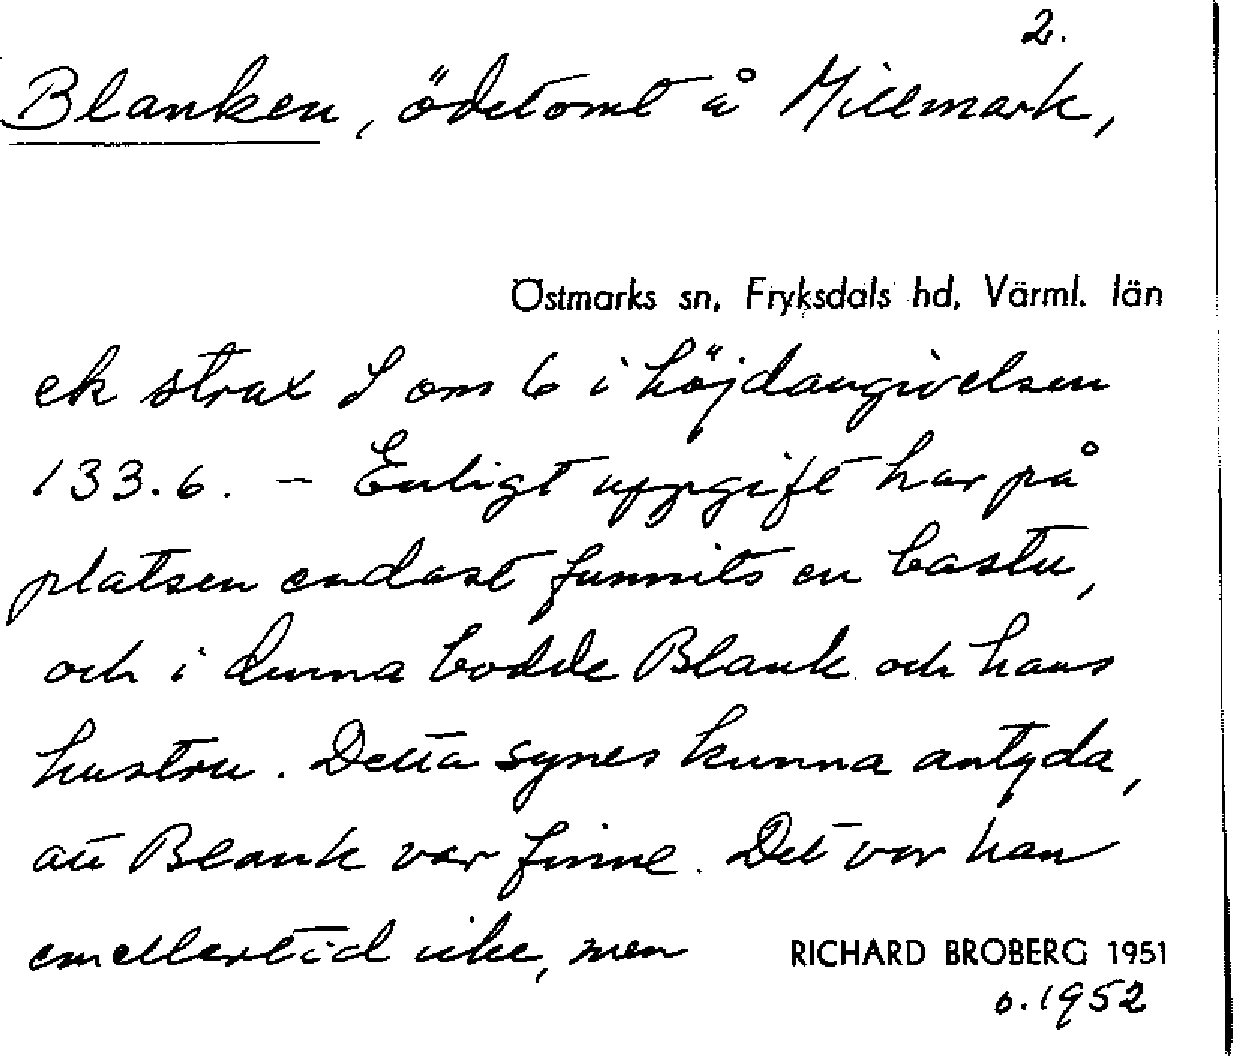 2.
Blanken, ödetomt å Millmark,
Östmarks sn, Fryksdals hd, Värml. län
ek strax S om 6 i höjdangivelsen
133.6. - Enligt uppgift har på
platsen endast funnits en bastu,
och i denna bodde Blank och hans
hustru. Detta synes kunna antyda,
att Blank var finne. Det var han
emellertid icke, men
RICHARD BROBERG 1951
o. 1952